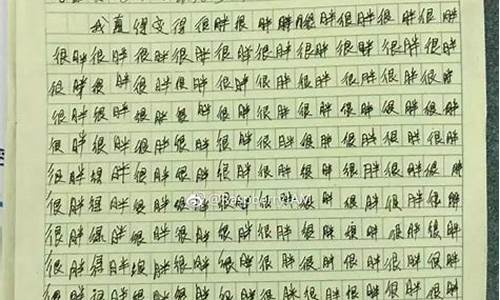 我真得变得很胖很胖胖很胖很胖很胖
很胖很胖很胖很胖很胖很胖很胖很胖很胖
很胖很胖很胖很胖很胖很胖很胖很胖很胖
很胖很胖很胖很胖很胖很胖很胖很胖很胖
很胖很胖很胖很胖很胖很胖很胖很胖很胖
很胖很胖很胖很胖很胖很胖很胖很胖很胖
很胖很胖很胖很胖很胖很胖很胖很胖很胖
很胖很胖很胖很胖很胖很胖很胖很胖很胖
很胖很胖很胖很胖很胖很胖很胖很胖很胖
很胖很胖很胖很胖很胖很胖很胖很胖很胖